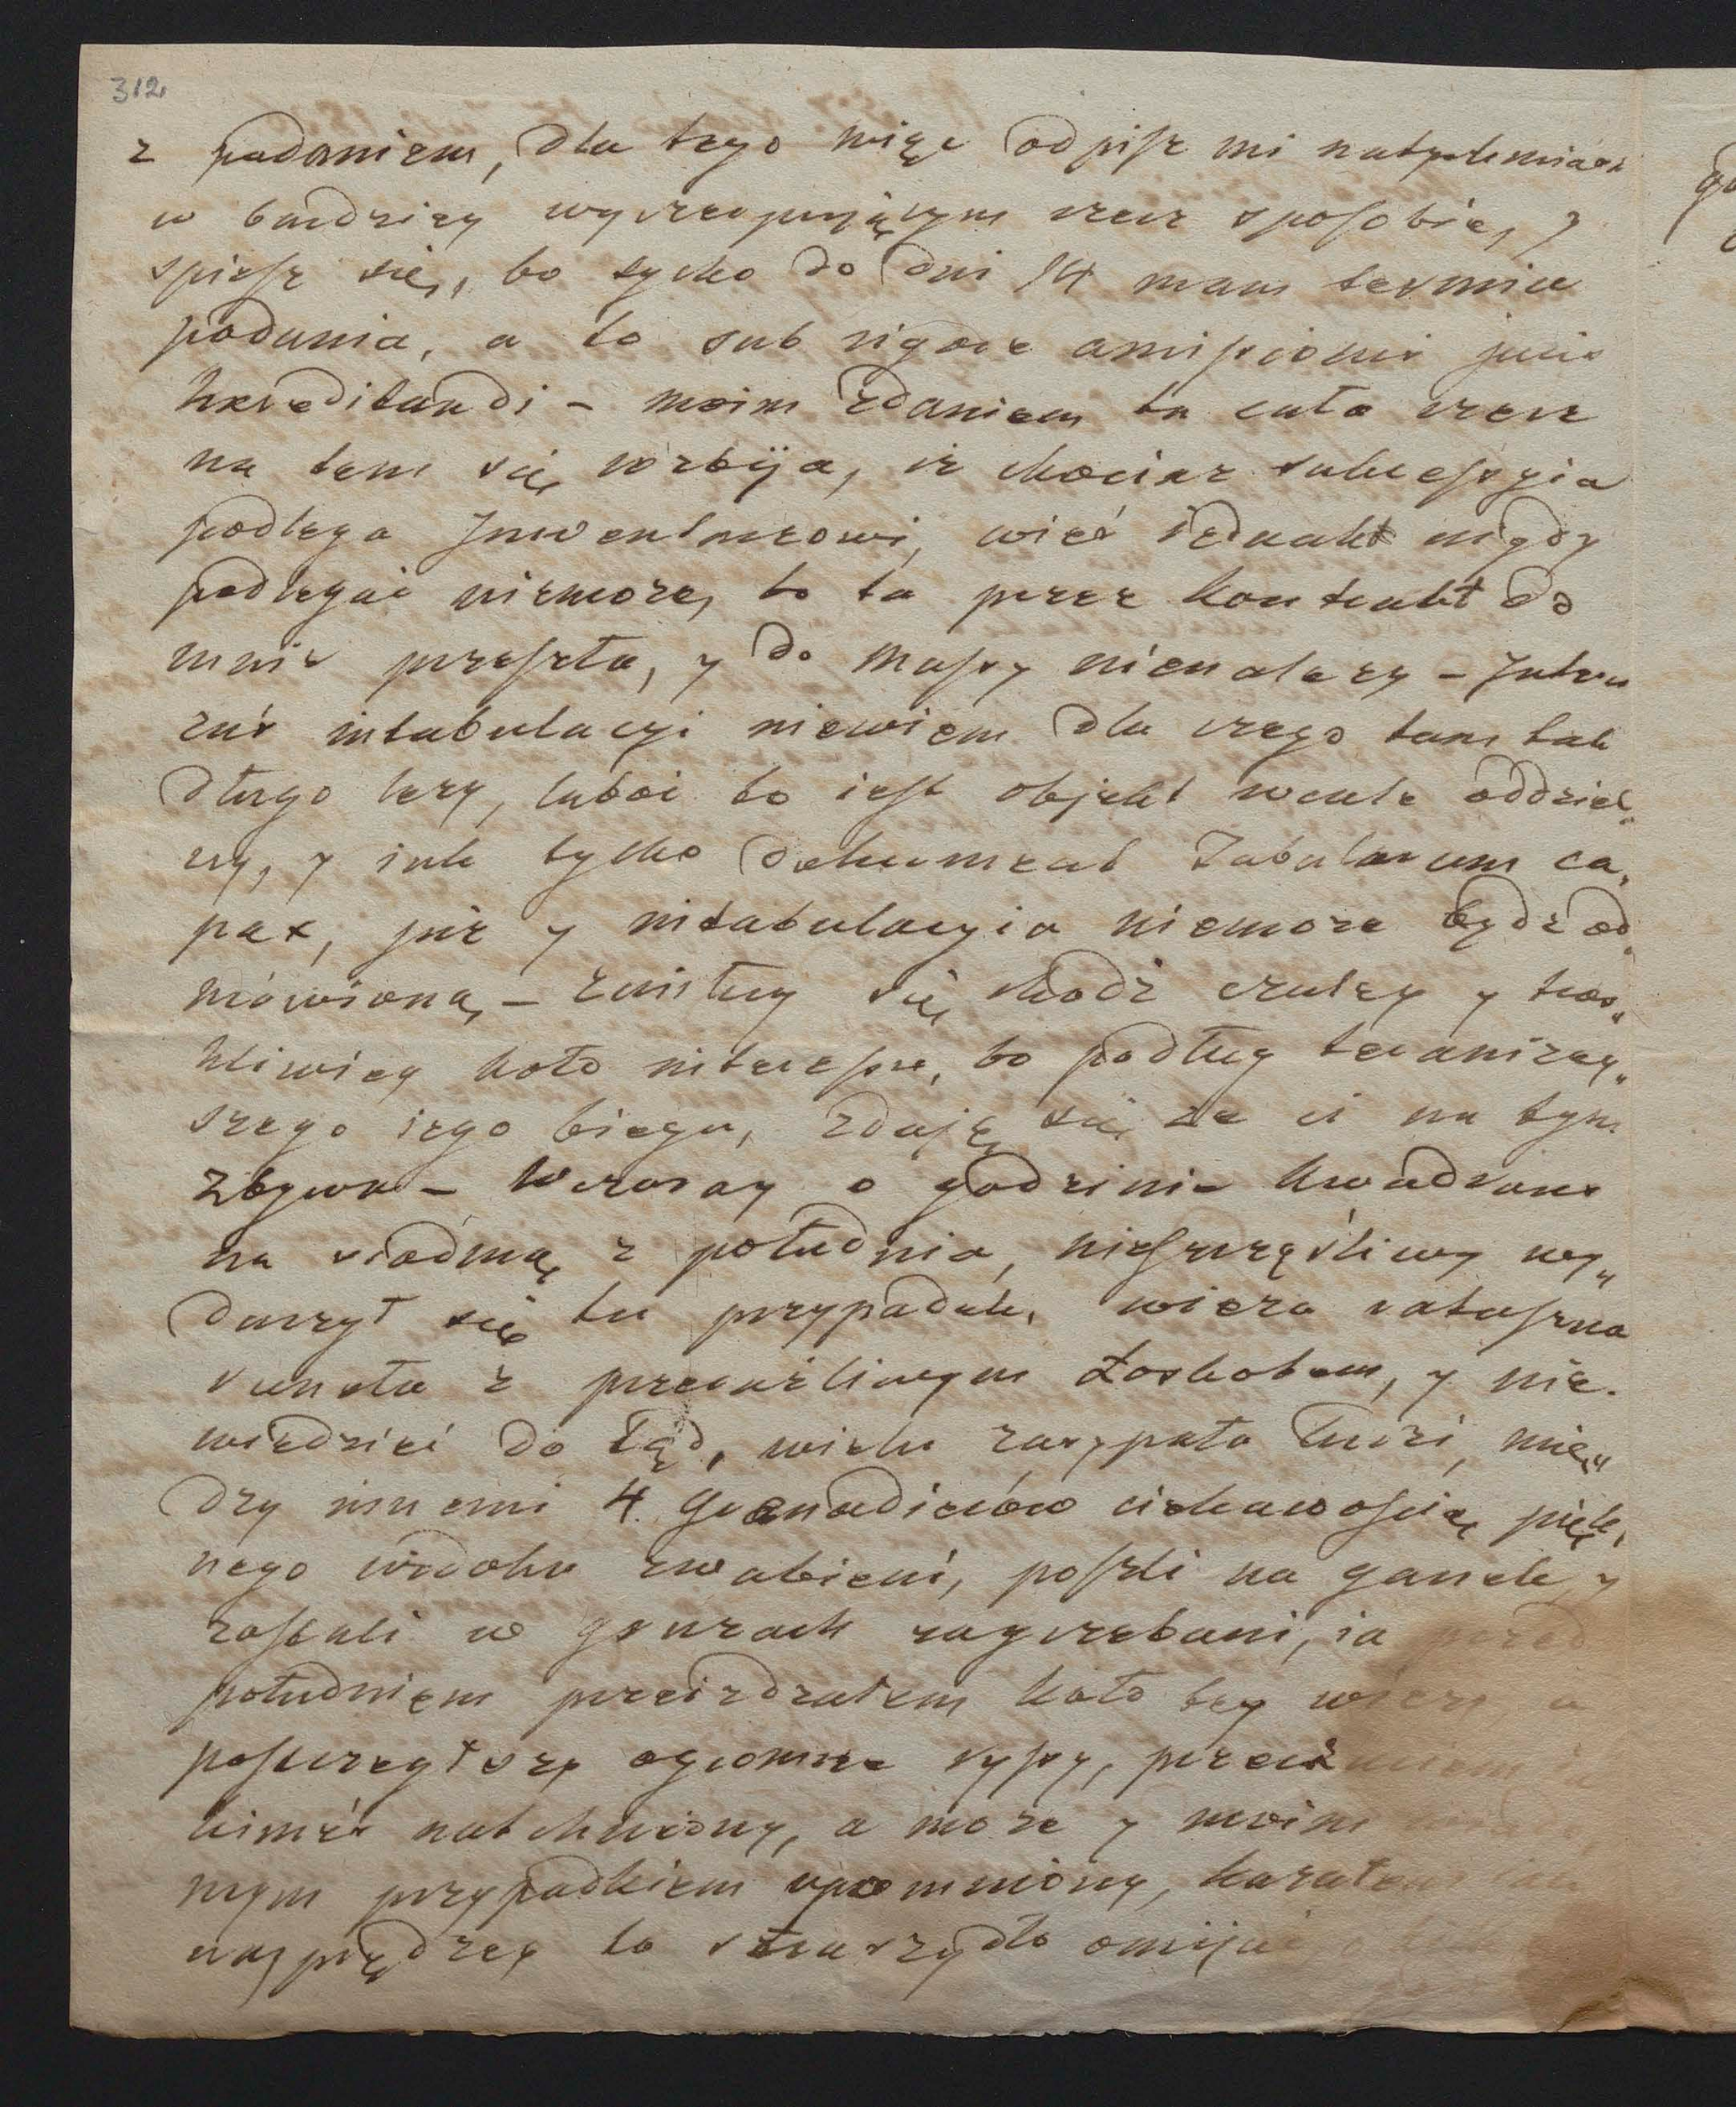 312
z podaniem, dla tego więc odpisz mi natychmiast
w bardziey wyszczepującym rzecz sposobie, y
spiesz się, bo tylko do dni 14 mam termin
podania, a to sub rigore amissionis juris
haereditandi – moim zdaniem ta cała rzecz
na tem się rozbija, iż chociaż sukcessyia
podlega Inwentarzowi, wieś iednakż nigdy
podlegać niemoże, bo ta przez kontrakt do
mnie przeszła, y do massy nienależy – Interes
zaś intabulacyi niewiem dla czego tam tak
długo leży, luboć to iest objekt wcale oddziel„
ny, y iak tylko dokument Tabularum ca„
pax, już y intabulacyia niemoże bydź od„
mówioną – zaistny się chodź czuley y tros„
kliwiey koło interessu, bo podług teraźniey„
szego iego biegu, zdaję się że ci na tym
zbywa – Wczoray o godzinie kwadrans
na siódmą z południa, nieszczęśliwy wy„
darzył się tu przypadek, wieża ratuszna
runęła z przeraźliwym łoskotem, y nie
wiedzieć do tąd, wielu zasypała ludzi, mię„
dzy innemi 4. Granadierów ciekawością pięk„
nego widoku zwabieni, poszli na ganek y
zostali w gruzach zagrzebani, ia przed
południem przeieżdżałem koło tey wieży, a
postrzegłszy ogromne rysy, przeczuciem ia
kimśi natchniony, a może y moim
nym przypadkiem upomniony, kazałem
nayprędzey to straszydło omijać